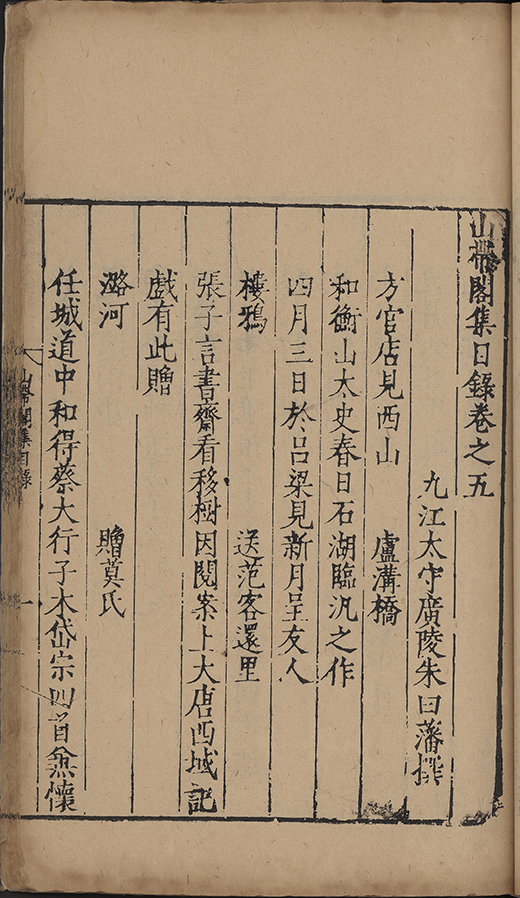 山帶閣集目錄卷之五
九江太守廣陵朱曰藩撰
方官店見西山　盧溝橋
和衡山太史春日石湖臨汎之作
四月三日於呂梁見新月呈友人
棲鴉　送范客還里
張子言書齋看移樹因閱案上大唐西域記
戲有此贈
潞河　贈莫氏
任城道中和得蔡大行子木岱宗四首兼懷
山帶閣集目錄
一